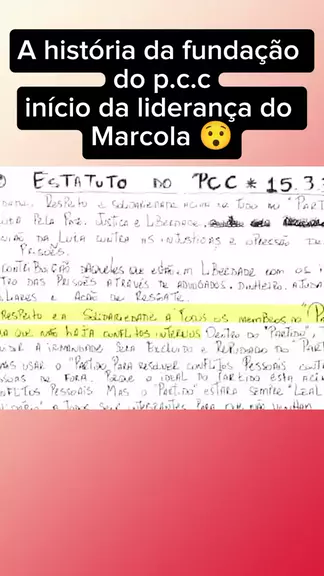 A história da fundação
do p.c.c
início da liderança do
Marcola 😯
ESTATUTO DO PCC * 15.3.3
RESPEITO E SOLIDARIEDADE ACIMA DE TUDO AO "PARTI
LUTA PELA PAZ. JUSTIÇA E LIBERDADE.
UNIÃO DA LUTA CONTRA AS INJUSTIÇAS E OPRESSÃO DE
PRISÕES.
CONTRIBUIÇÃO DAQUELES QUE ESTÃO EM LIBERDADE COM OS I
TRO DAS PRISÕES ATRAVÉS DE ADVOGADOS. DINHEIRO. AJUDA
LIARES E AÇÃO DE RESGATE.
RESPEITO E A SOLIDARIEDADE A TODOS OS MEMBROS DO "P
QUE NÃO HAJA CONFLITOS INTERNOS DENTRO DO "PARTIDO",
DIR A IRMANDADE SERÁ EXCLUIDO E REPUDIADO DO "PART
MAIS USAR O "PARTIDO PARA RESOLVER CONFLITOS PESSOAIS CONT
SOAS DE FORA. PORQUE O IDEAL DO PARTIDO ESTA ACI
NFLITOS PESSOAIS MAS O "PARTIDO" ESTARÁ SEMPRE "LEAL
A TODOS SEUS INTEGRANTES PARA QUE NÃO VENHAM